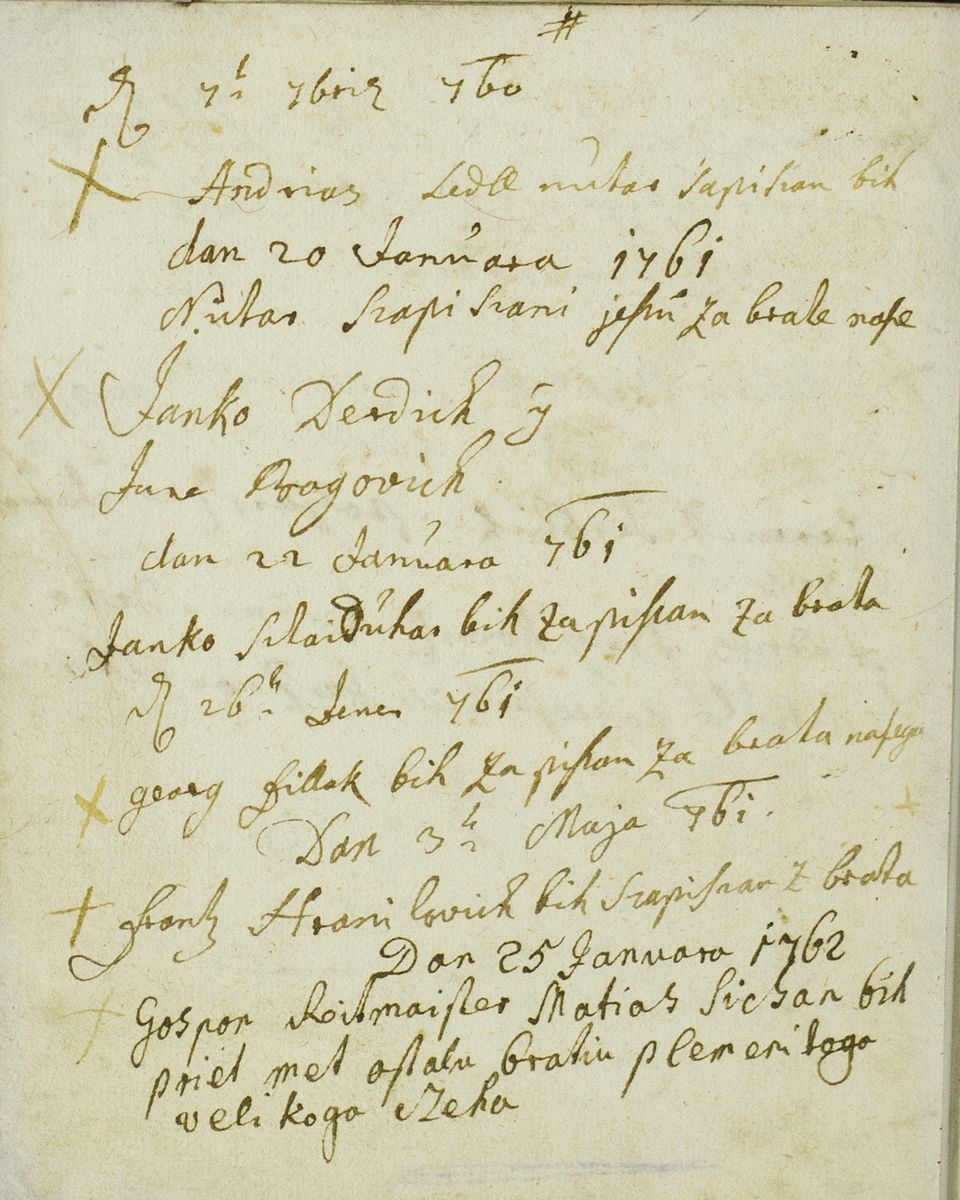 #
7t 7briz 760
Andrias Ledll nutar szapiszan bih
dan 20 Januara 1761
Nutar szapiszani jeszu za brate nasse
Janko Derdich y
Jure Dragovich
dan 22 Januara 761
Janko bih zapiszan za brata
26t Jener 761
georg fillak bih zapiszan za brata nassega
Dan 3t Maja 761.
frantz Hranilovich bih szapiszan z brata
Dan 25 Januara 1762
Gospon Reitmaister Matias Sicsan bih
priet met ostalu bratiu plemenitoga
velikoga Czeha